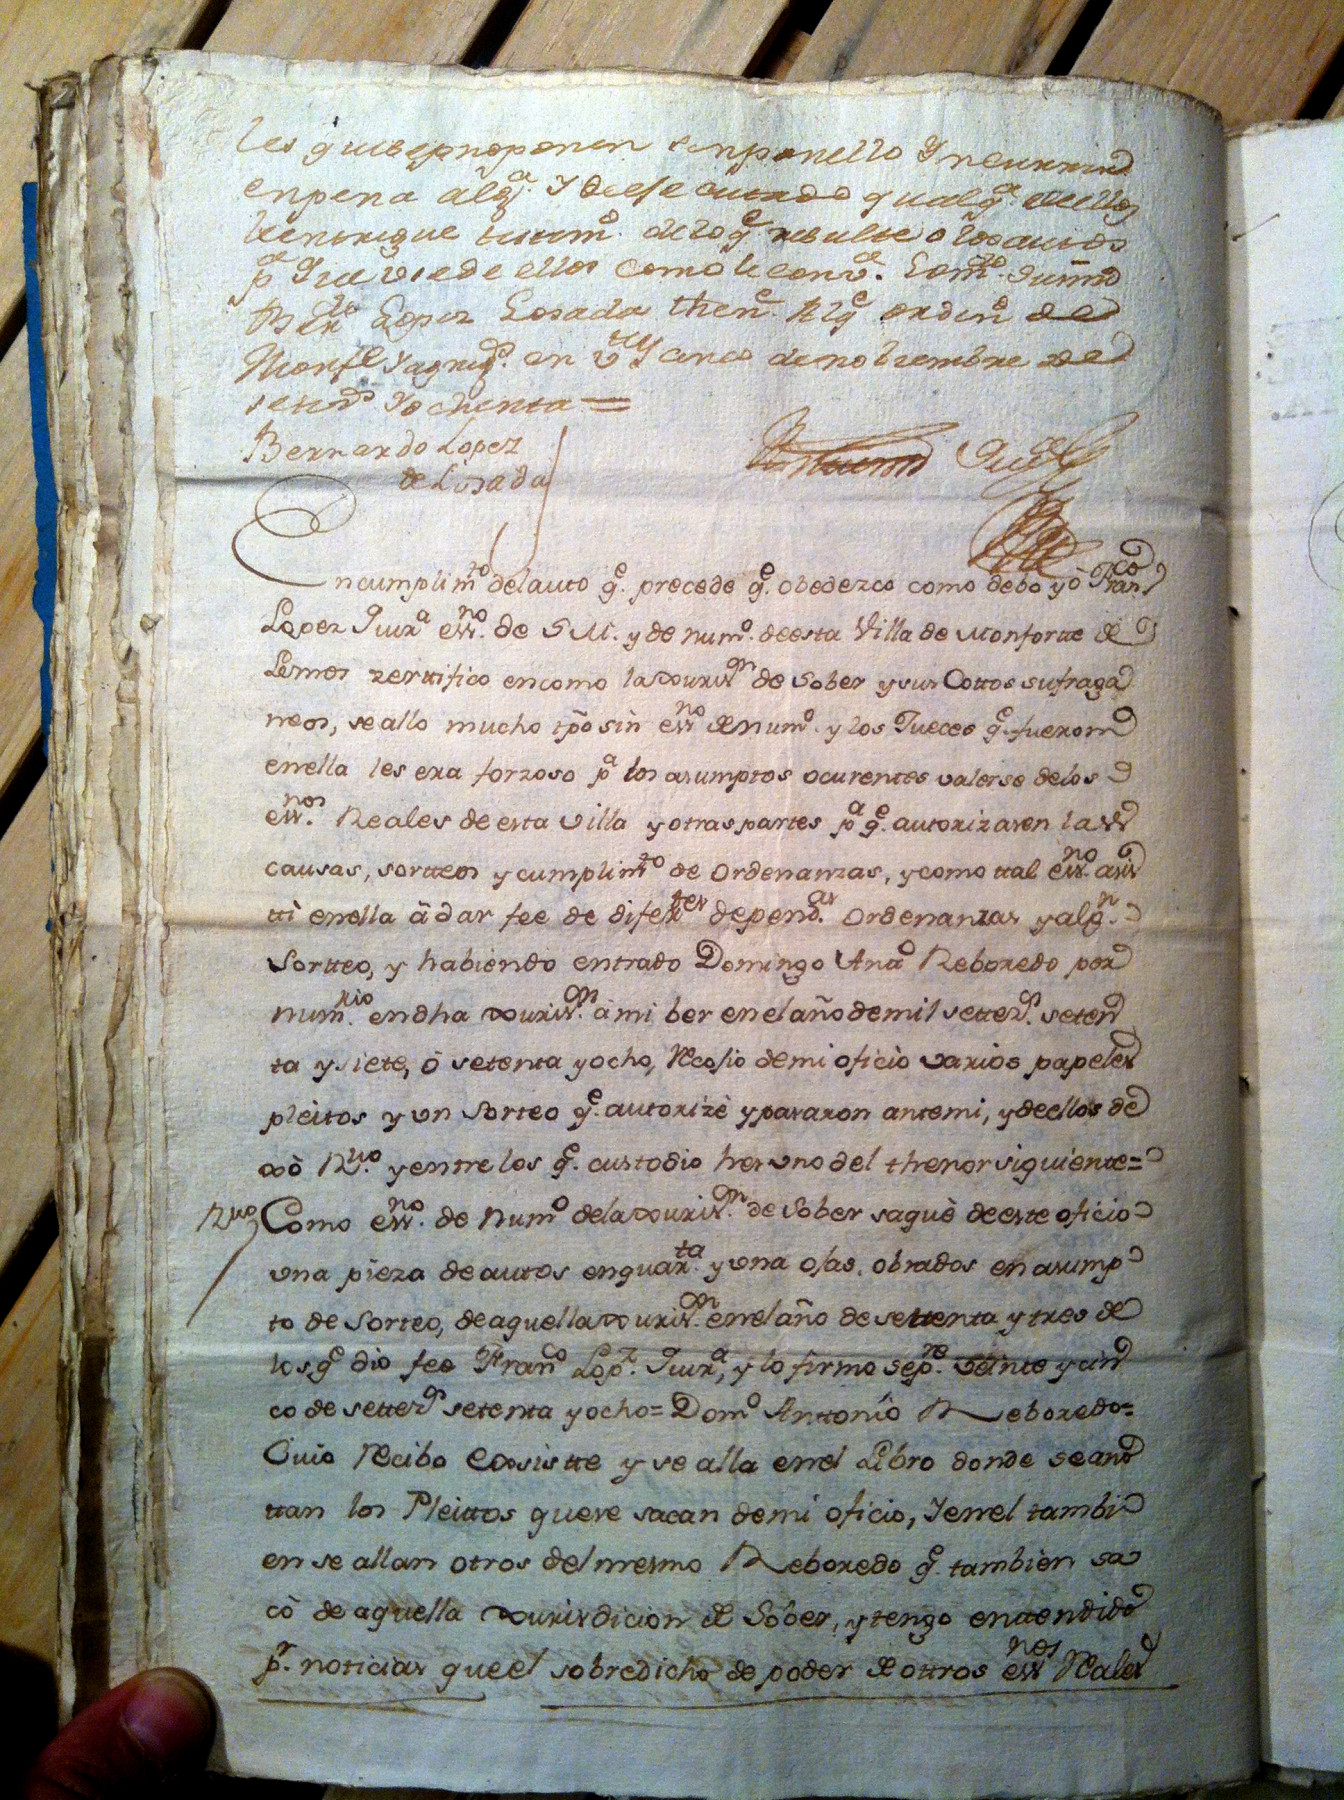 les que se proponen sin por ello Yncurrir
en pena alg.ª Y de ese autuado qualq.ª de ellos
le entregue testim.º de lo q.e resulte o los autos
p.ª que use de ellos como le conv.e Lo m.do Su m.d
D.n Bern.do Lopez Losada Then.e Alq.e ordin.º de
Monf.te Y agreg.s en v.te Y cinco de nobiembre de
setez.s Y ochenta =
Bernardo Lopez
de Losada
En cumplim.to del auto q.e precede q.e obedezco como debo yo Fran.co
Lopez Quir.ª ess.no de S M. y de num.º de esta Villa de Monfortte de
Lemos zerttifico en como la Xuris.on de Sober y sus Cottos sufraga
neos, se allo mucho tpõ sin ess.no de num.º y los Jueces q.e fueron
en ella les era forzoso p.ª los asumptos ocurentes valerse de los
ess.nos Reales de esta villa y otras partes p.ª q.e autorizasen las
causas, sortteos y cumplim.to de Ordenanzas, y como ttal ess.no asis
tti en ella â dar fee de difer.tes depend.as Ordenanzas y alg.n
Sortteo, y habiendo entrado Domingo Ant.º Reboredo por
num.rio en dha Xuris.on â mi ber en el año de mil settez.s seten
ta y siete, ó setenta y ocho, Recojio de mi oficio varios papeles
pleitos y un Sorteo q.e autorizé y pasaron ante mi, y de ellos de
xò R.vo y entre los q.e custodio hes uno del thenor siguiente=
R.vo Como ess.no de Num.º de la Xuris.on de Sober saquè de este oficio
una pieza de autos en quar.ta y una ojas, obrados en asump
to de Sorteo, de aquella Xuris.on en el año de settenta y tres de
los q.e dio fee Fran.co Lop.z Quir.ª, y lo firmo sep.re veinte y cin
co de settez.s setenta y ocho= Dom.º Anttonio Reboredo=
Cuio Recibo Exsistte y se alla en el Libro donde se ano
ttan los Pleittos que se sacan de mi oficio, Y en el tambi
en se allan otros del mesmo Reboredo q.e tambien sa
cò de aquella Xurisdicion de Sober, y tengo enttendido
p.r noticias que el sobredicho de poder de ottros ess.nos Reales